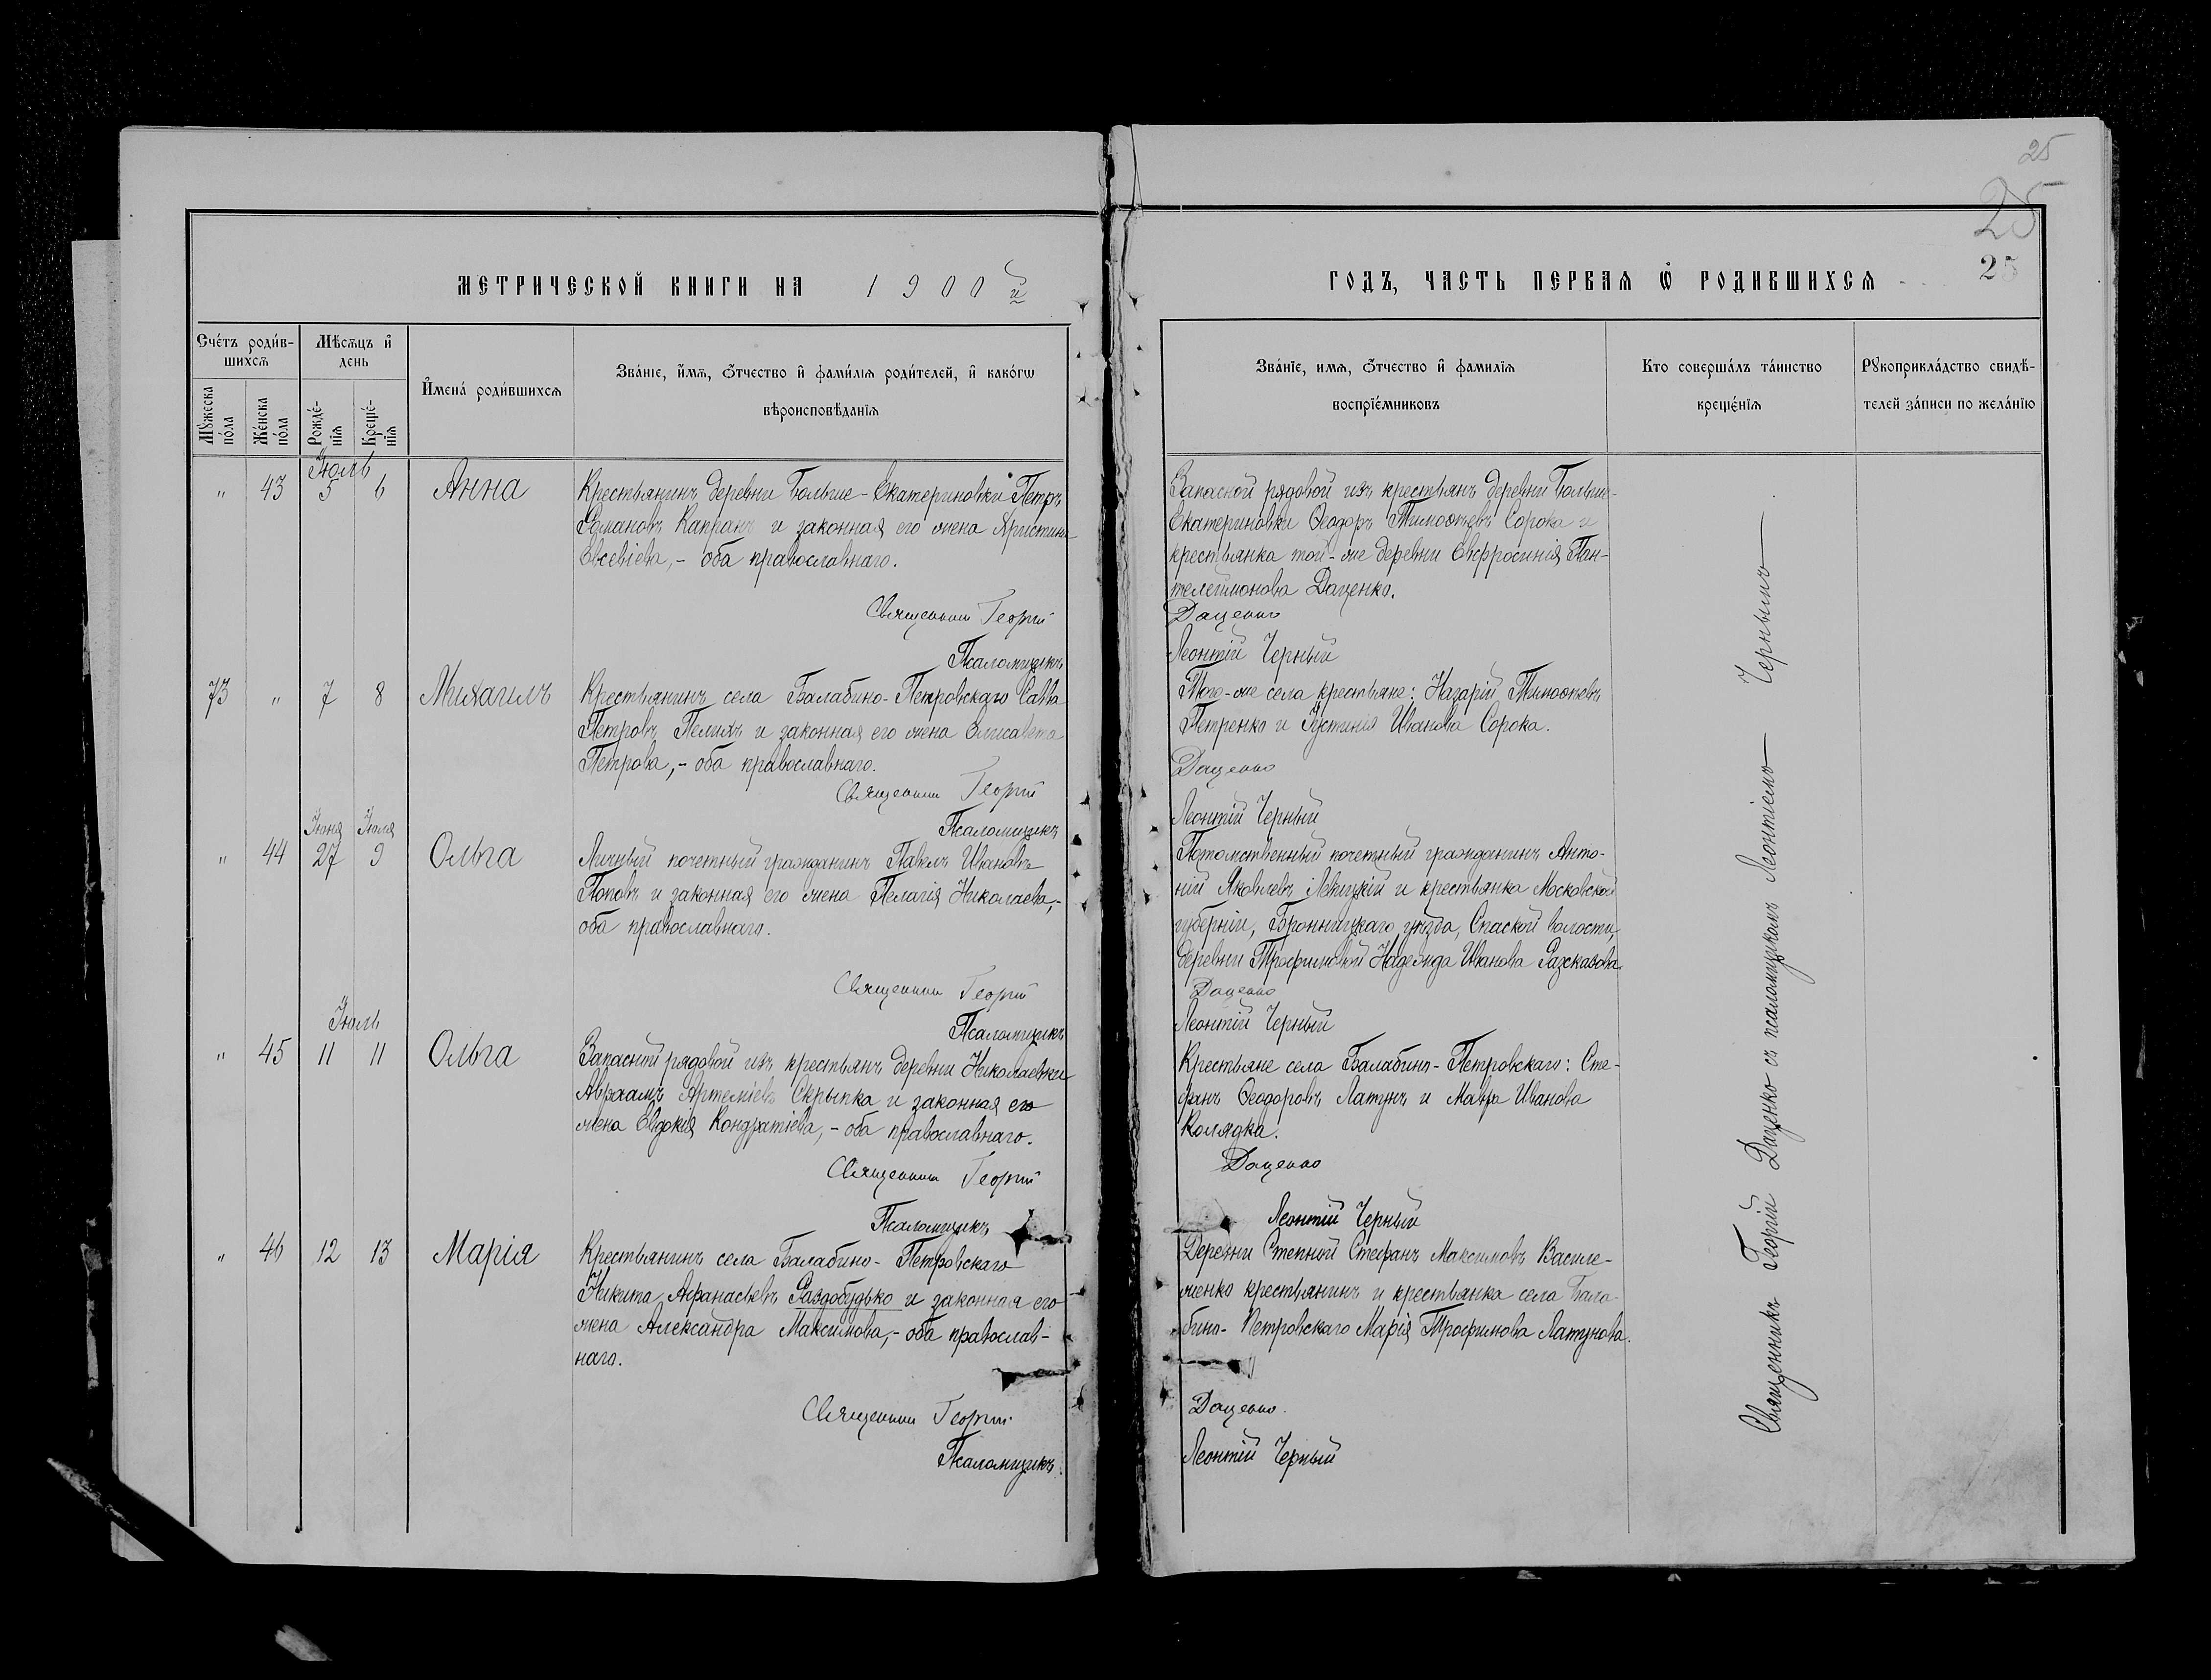 25
25
25
МЕТРИЧЕСКОЙ КНИГИ НА 1900й
ГОДЪ, ЧАСТЬ ПЕРВАѦ Ѡ РОДИВШИХСѦ
Счетъ родившихсѧ
Мѣсѧцъ и день
Имена родившихсѧ
Званіе, имѧ, отчество и фамиліѧ родителей, и какогѡ
вѣроисповѣданіѧ
Мужеска пола
Женска пола
Рожденіѧ
Крещеніѧ
Званіе, имѧ, отчество и фамиліѧ
воспріемниковъ
Кто совершалъ таинство
крещеніѧ
Рукоприкладство свидѣ-
телей записи по желанію
Іюль
" 43 5 6 Анна
Крестьянинъ деревни Больше-Екатериновки Петръ
Романовъ Капранъ и законная его жена Христина
Евсевіева,- оба православнаго.
Священник Георгій
Псаломщикъ
Запасной рядовой изъ крестьянъ деревни Больше-
Екатериновки Ѳеодоръ Тимоѳеевъ Сорока и
крестьянка той-же деревни Евфросинія Пан-
телеимонова Даценко.
Даценко
Леонтій Черный
73 " 7 8 Михаилъ
Крестьянинъ села Балабино-Петровскаго Савва
Петровъ Пелихъ и законная его жена Елисавета
Петрова,- оба православнаго.
Священник Георгій
Псаломщикъ
Того-же села крестьяне: Назарій Тимоѳеевъ
Петренко и Іустинія Иванова Сорока.
Даценко
Леонтій Черный
Іюня Іюля
" 44 27 9 Ольга
Личный почетный гражданинъ Павелъ Ивановъ
Поповъ и законная его жена Пелагія Николаева,-
оба православнаго.
Священник Георгій
Псаломщикъ
Потомственный почетный гражданинъ Анто-
ній Яковлевъ Левицкій и крестьянка Московской
губерніи, Бронницкаго уѣзда, Спаской волости,
деревни Трофимовой Надежда Иванова Разсказова.
Даценко
Леонтій Черный
Іюль
" 45 11 11 Ольга
Запасной рядовой изъ крестьянъ деревни Николаевки
Авраамъ Артеміевъ Скрыпка и законная его
жена Евдокія Кондратіева,- оба православнаго.
Священник Георгій
Псаломщикъ
Крестьяне села Балабино-Петровскаго: Сте-
фанъ Ѳеодоровъ Латунъ и Мавра Иванова
Колядка.
Даценко
Леонтій Черный
" 46 12 13 Марія
Крестьянинъ села Балабино-Петровскаго
Никита Афанасьевъ Раздобудько и законная его
жена Александра Максимова,- оба православ-
наго.
Священник Георгій
Псаломщикъ
Деревни Степной Стефанъ Максимовъ Василе-
ченко крестьянинъ и крестьянка села Бала-
бино-Петровскаго Марія Трофимова Латунова.
Даценко
Леонтій Черный
Священникъ Георгій Даценко съ псаломщикомъ Леонтіемъ Чернымъ